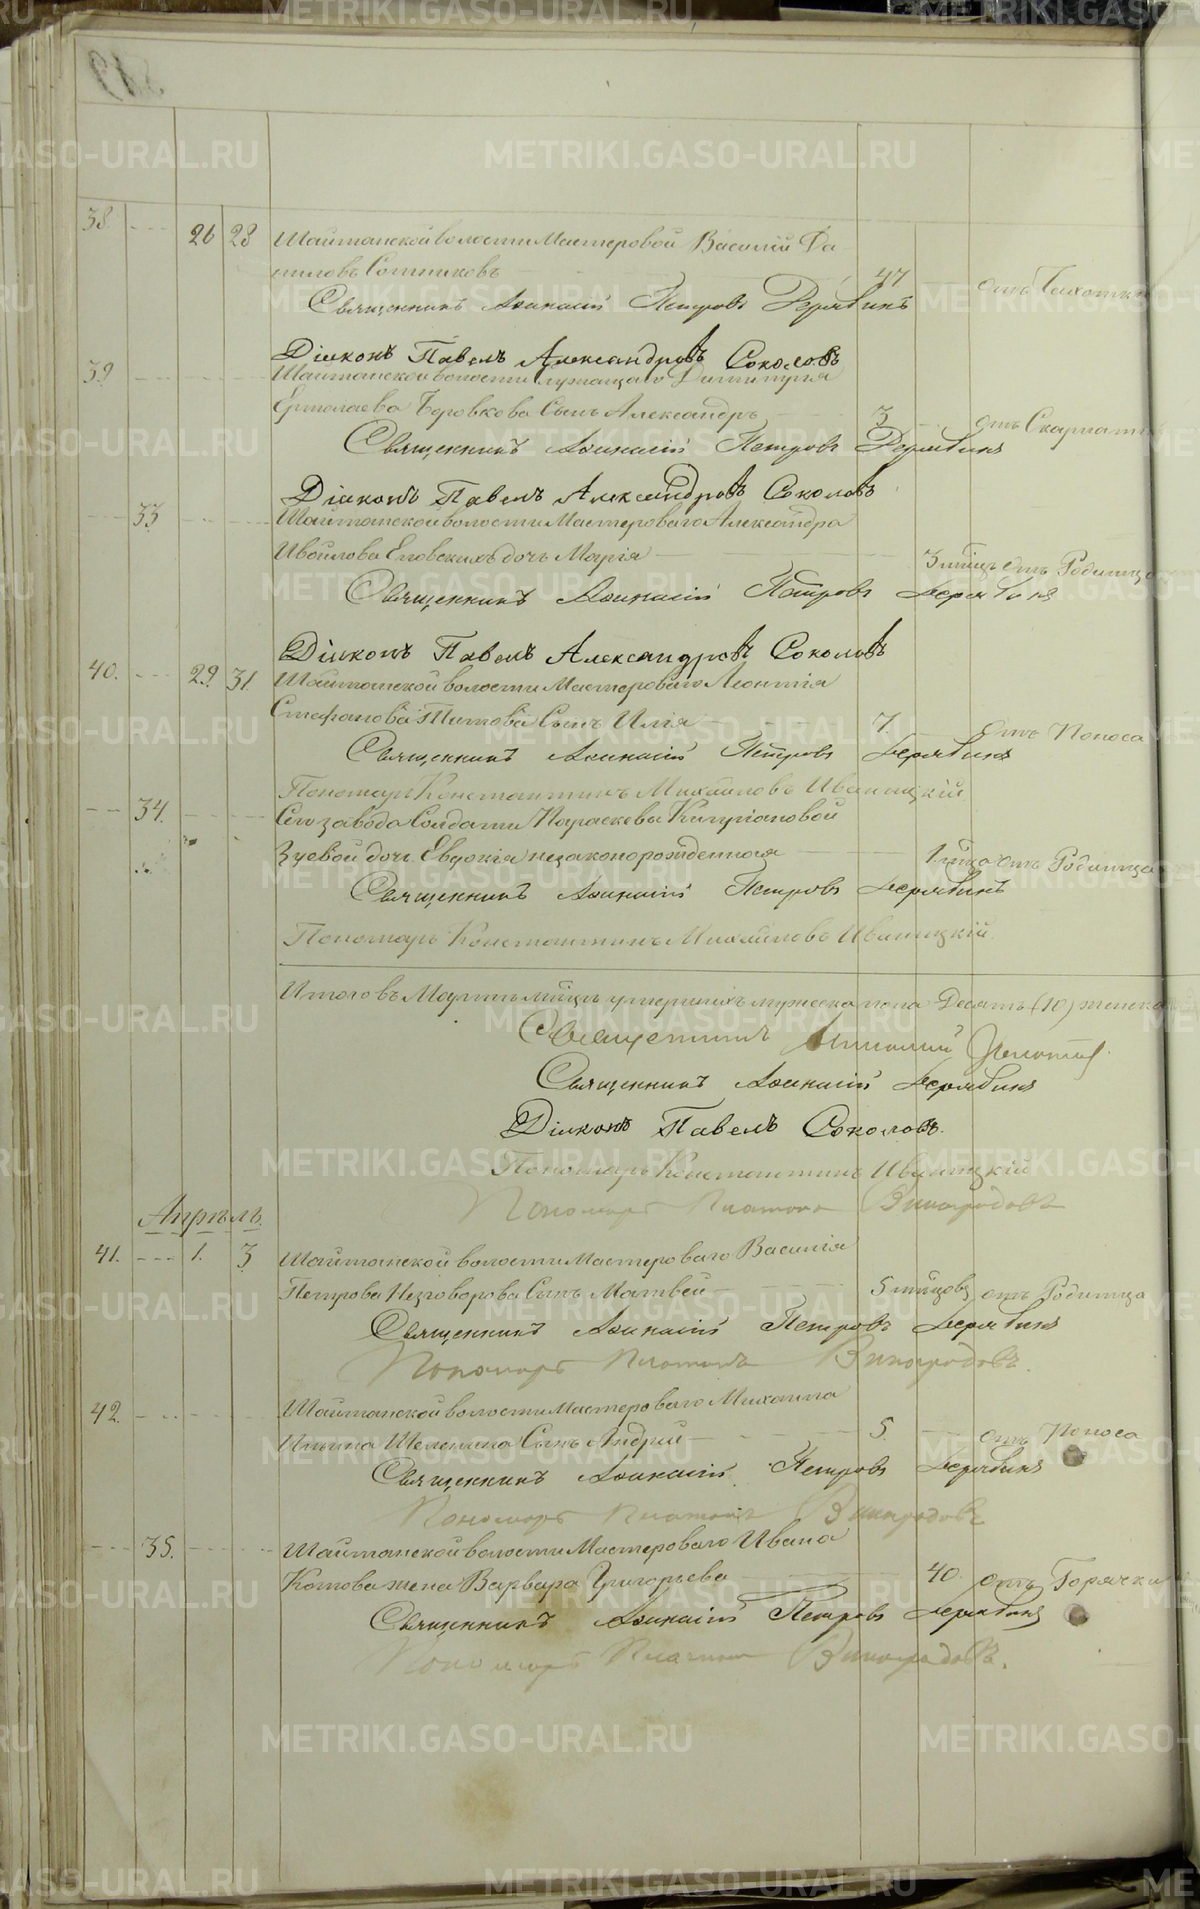 38. 26 28 Шайтанской волости Мастеровой Василий Да
ниловъ Сотниковъ 47 отъ Чахотки
Священникъ Аѳанасій Петровъ Дерябинъ
Діаконъ Павелъ Александровъ Соколовъ
39. Шайтанской волости служащаго Димитрія
Ермолаева Боровкова Сынъ Александръ 3 отъ Скарлати
Священникъ Аѳанасій Петровъ Дерябинъ
Діаконъ Павелъ Александровъ Соколовъ
33 Шайтанской волости Мастероваго Александра
дочь Марія 3 мѣць отъ Родимца
Священникъ Аѳанасій Петровъ Дерябинъ
Діаконъ Павелъ Александровъ Соколовъ
40. 29. 31. Шайтанской волости Мастероваго Леонтія
Стефанова Титова Сынъ Илія 7. Отъ Поноса
Священникъ Аѳанасій Петровъ Дерябинъ
Пономарь Константинъ Михайловъ Иваницкій
34. Сего завода Солдатки Параскевы Кипріановой
Зуевой дочь Евдокія незаконорожденная 1 мѣца отъ Родимца
Священникъ Аѳанасій Петровъ Дерябинъ
Пономарь Константинъ Михайловъ Иваницкій
Итого въ Мартѣ мѣцѣ умершихъ мужеска пола Десять (10) женска
Священникъ
Священникъ Аѳанасій Дерябинъ
Діаконъ Павелъ Соколовъ.
Пономарь Константинъ Иваницкій
Пономарь Платонъ Виноградовъ
Апрѣль.
41. 1. 3 Шайтанской волости Мастероваго Василія
Петрова Незговорова Сынъ Матвей 5 мѣцовъ отъ Родимца
Священникъ Аѳанасій Петровъ Дерябинъ
Пономарь Платонъ Виноградовъ.
42. Шайтанской волости Мастероваго Михаила
Ильина Шелепина Сынъ Андрей 5 отъ Поноса
Священникъ Аѳанасій Петровъ Дерябинъ
Пономарь Платонъ Виноградовъ
35. Шайтанской волости Мастероваго Ивана
Котова жена Варвара Григорьева 40. отъ Горячки
Священникъ Аѳанасій Петровъ Дерябинъ
Пономарь Платонъ Виноградовъ.
METRIKI.GASO-URAL.RU